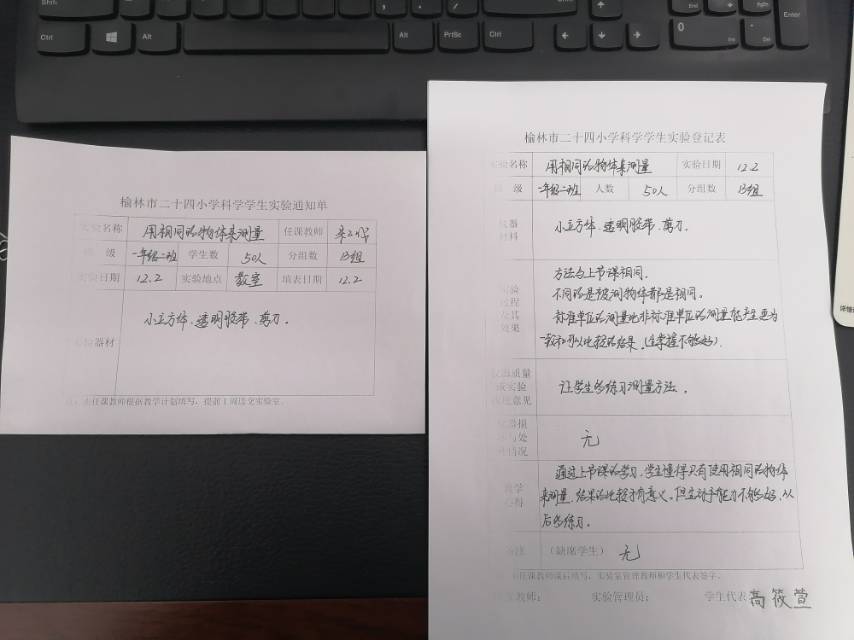 Shift
Ctrl
Alt
Alt
PrtSc
Ctrl
End
PgDn
Enter
0
Ins
Del
榆林市二十四小学科学学生实验通知单
实验名称 用相同的物体来测量 任课教师
班 级 一年级二班 学生数 50人 分组数 13组
实验日期 12.2 实验地点 教室 填表日期 12.2
实验器材 小立方体、透明胶带、剪刀。
注：由任课教师根据教学计划填写，提前1周送交实验室。
榆林市二十四小学科学学生实验登记表
实验名称 用相同的物体来测量 实验日期 12.2
班 级 一年级二班 人数 50人 分组数 13组
仪器
材料
小立方体、透明胶带、剪刀。
实验
过程
及其
效果
方法与上节课相同。
不同的是被测物体都是相同。
标准单位的测量比非标准单位的测量能产生更为
一致和可以比较的结果。(这掌握不够好)。
仪器质量
或实验
改进意见
让学生多练习测量方法。
仪器损
坏与处
理情况
无
教学
心得
通过上节课的学习，学生懂得只有使用相同的物体
来测量，结果的比较才有意义。但主动手能力不够好，以
后多练习。
备注 (缺席学生) 无
任课教师课后填写，实验室管理教师和学生代表签字。
任课教师： 实验管理员： 学生代表 高筱萱